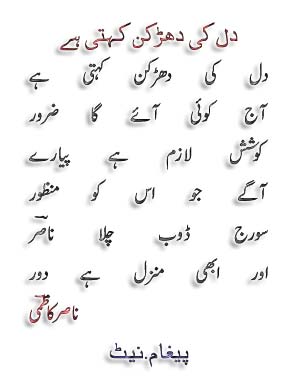 دل کی دھڑکن کہتی ہے
دل کی دھڑکن کہتی ہے
آج کوئی آئے گا ضرور
کوشش لازم ہے پیارے
آگے جو اس کو منظور
سورج ڈوب چلا ناصرؔ
اور ابھی منزل ہے دور
ناصر کاظمی
پیغام.نیٹ